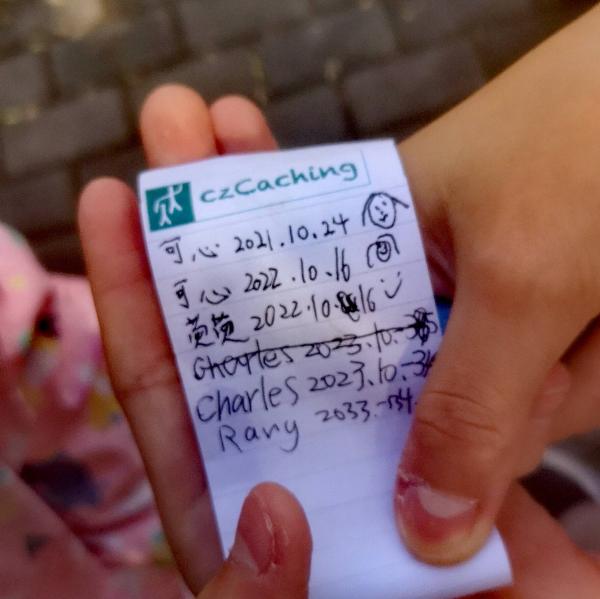 czCaching
可心 2021.10.24
可心 2022.10.16
萤萤 2022.10. 16
Charles 2023.10.
Charles 2023.10.
Rany